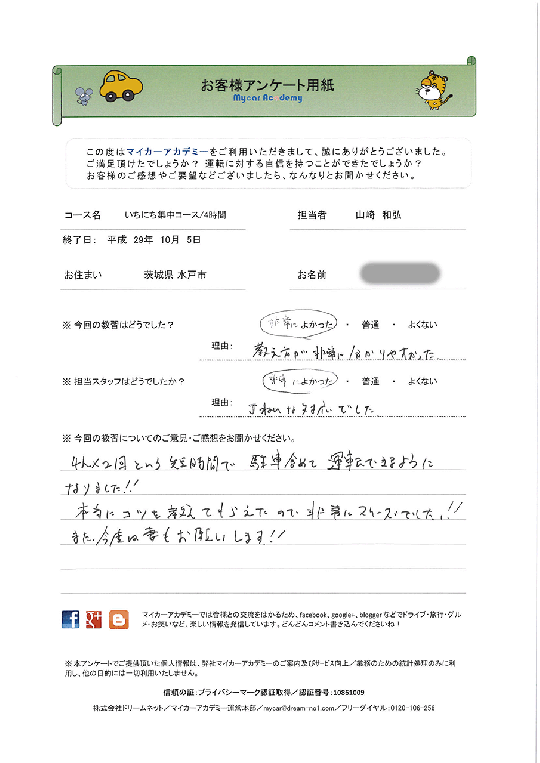 お客様アンケート用紙
Mycar Academy
この度はマイカーアカデミーをご利用いただきまして、誠にありがとうございました。
ご満足頂けたでしょうか？ 運転に対する自信を持つことができたでしょうか？
お客様のご感想やご要望などございましたら、なんなりとお聞かせください。
コース名 いちにち集中コース/4時間 担当者 山崎 和弘
終了日： 平成 29年 10月 5日
お住まい 茨城県 水戸市 お名前
※ 今回の教習はどうでした？ 非常に よかった ・ 普通 ・ よくない
理由： 教え方が非常に分かりやすかった
※ 担当スタッフはどうでしたか？ 非常によかった ・ 普通 ・ よくない
理由： ていねいな対応でした
※ 今回の教習についてのご意見・ご感想をお聞かせください。
4h×2回という短時間で 駐車含めて 運転できるように
なりました!!
本当にコツを教えてもらえたので非常にスムーズでした!!
また、今度は妻もお願いします!!
f g+ B
マイカーアカデミーでは皆様との交流をはかるため、facebook、google+、blogger などでドライブ・旅行・グル
メ・お笑いなど、楽しい情報を発信しています。どんどんコメント書き込んでくださいね！
※ 本アンケートでご提供頂いた個人情報は、弊社マイカーアカデミーのご案内及びサービス向上／業務のための統計処理のみに利
用し、他の目的には一切利用いたしません。
信頼の証：プライバシーマーク認証取得／認証番号：10861009
株式会社ドリームネット／マイカーアカデミー運営本部／